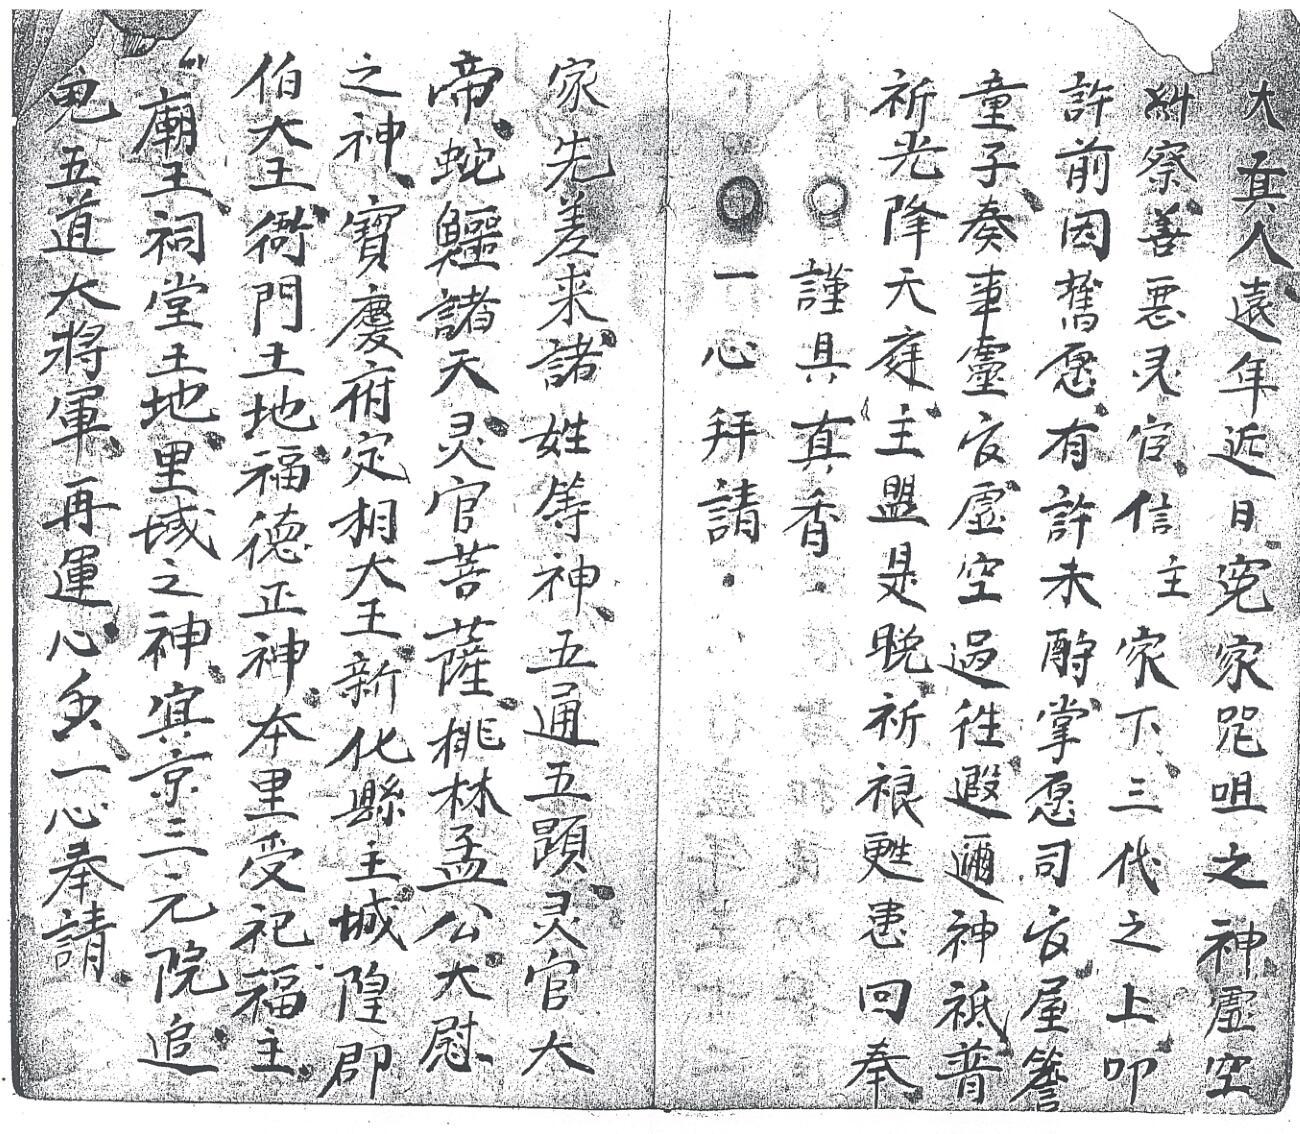 大真人遠年近日寃家咒咀之神虛空
糾察善惡灵官信主家下三代之上叩
許前因舊愿有許未酧掌愿司官屋簷
童子奏事靈官虛空過徃遐邇神祗普
祈光降天庭主盟是晚祈禳甦患回奉
謹具真香
一心拜請
家先差来諸姓等神五通五顕灵官大
帝蛇鱷諸天灵官菩薩桃林孟公大慰
之神寶慶府定相大王新化縣主城隍郡
伯大王衙門土地福德正神本里受祀福主
廟王祠堂土地里域之神冥京三元院追
䰟五道大將軍再運心香一心奉請